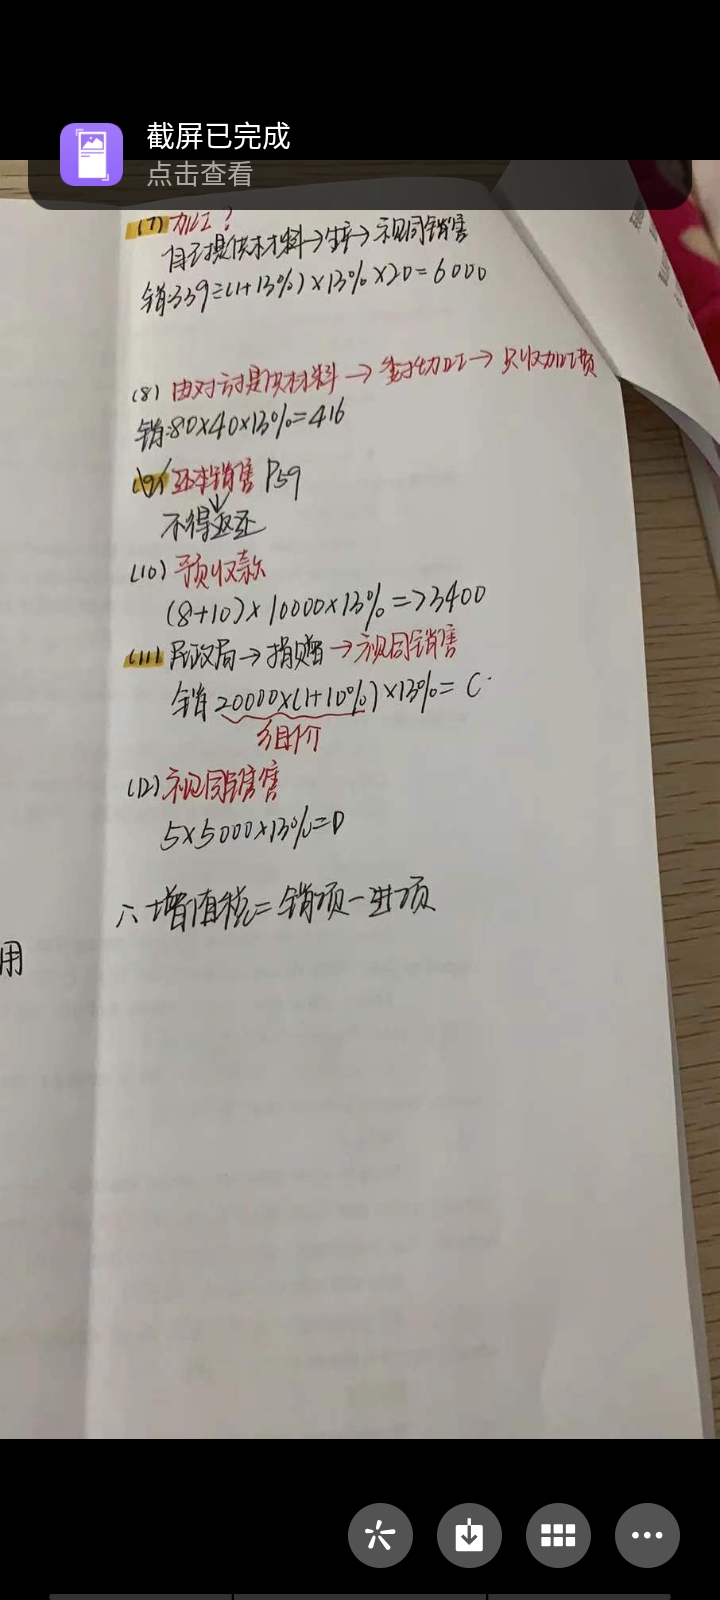 截屏已完成
点击查看
(7) 加工?
自己提供材料→生产→视同销售
销:339÷(1+13%)×13%×20=6000
(8) 由对方提供材料→委托加工→只收加工费
销:80×40×13%=416
(9) 还本销售 P59
不得返还
(10) 预收款
(8+10)×10000×13%=23400
(11) 民政局→捐赠→视同销售
销 20000×(1+10%)×13%= C
组价
(12) 视同销售
5×5000×13%=D
∴增值税=销项-进项
用